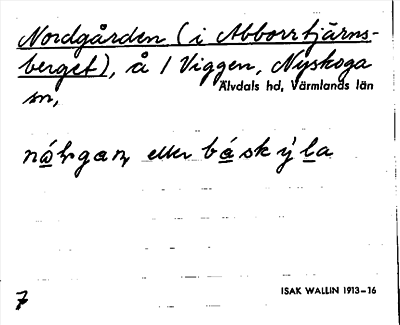 Nordgården (i Abborrtjärns-
berget), å 1 Viggen, Nyskoga
Älvdals hd, Värmlands län
sn,
eller båskýla
7
ISAK WALLIN 1913–16